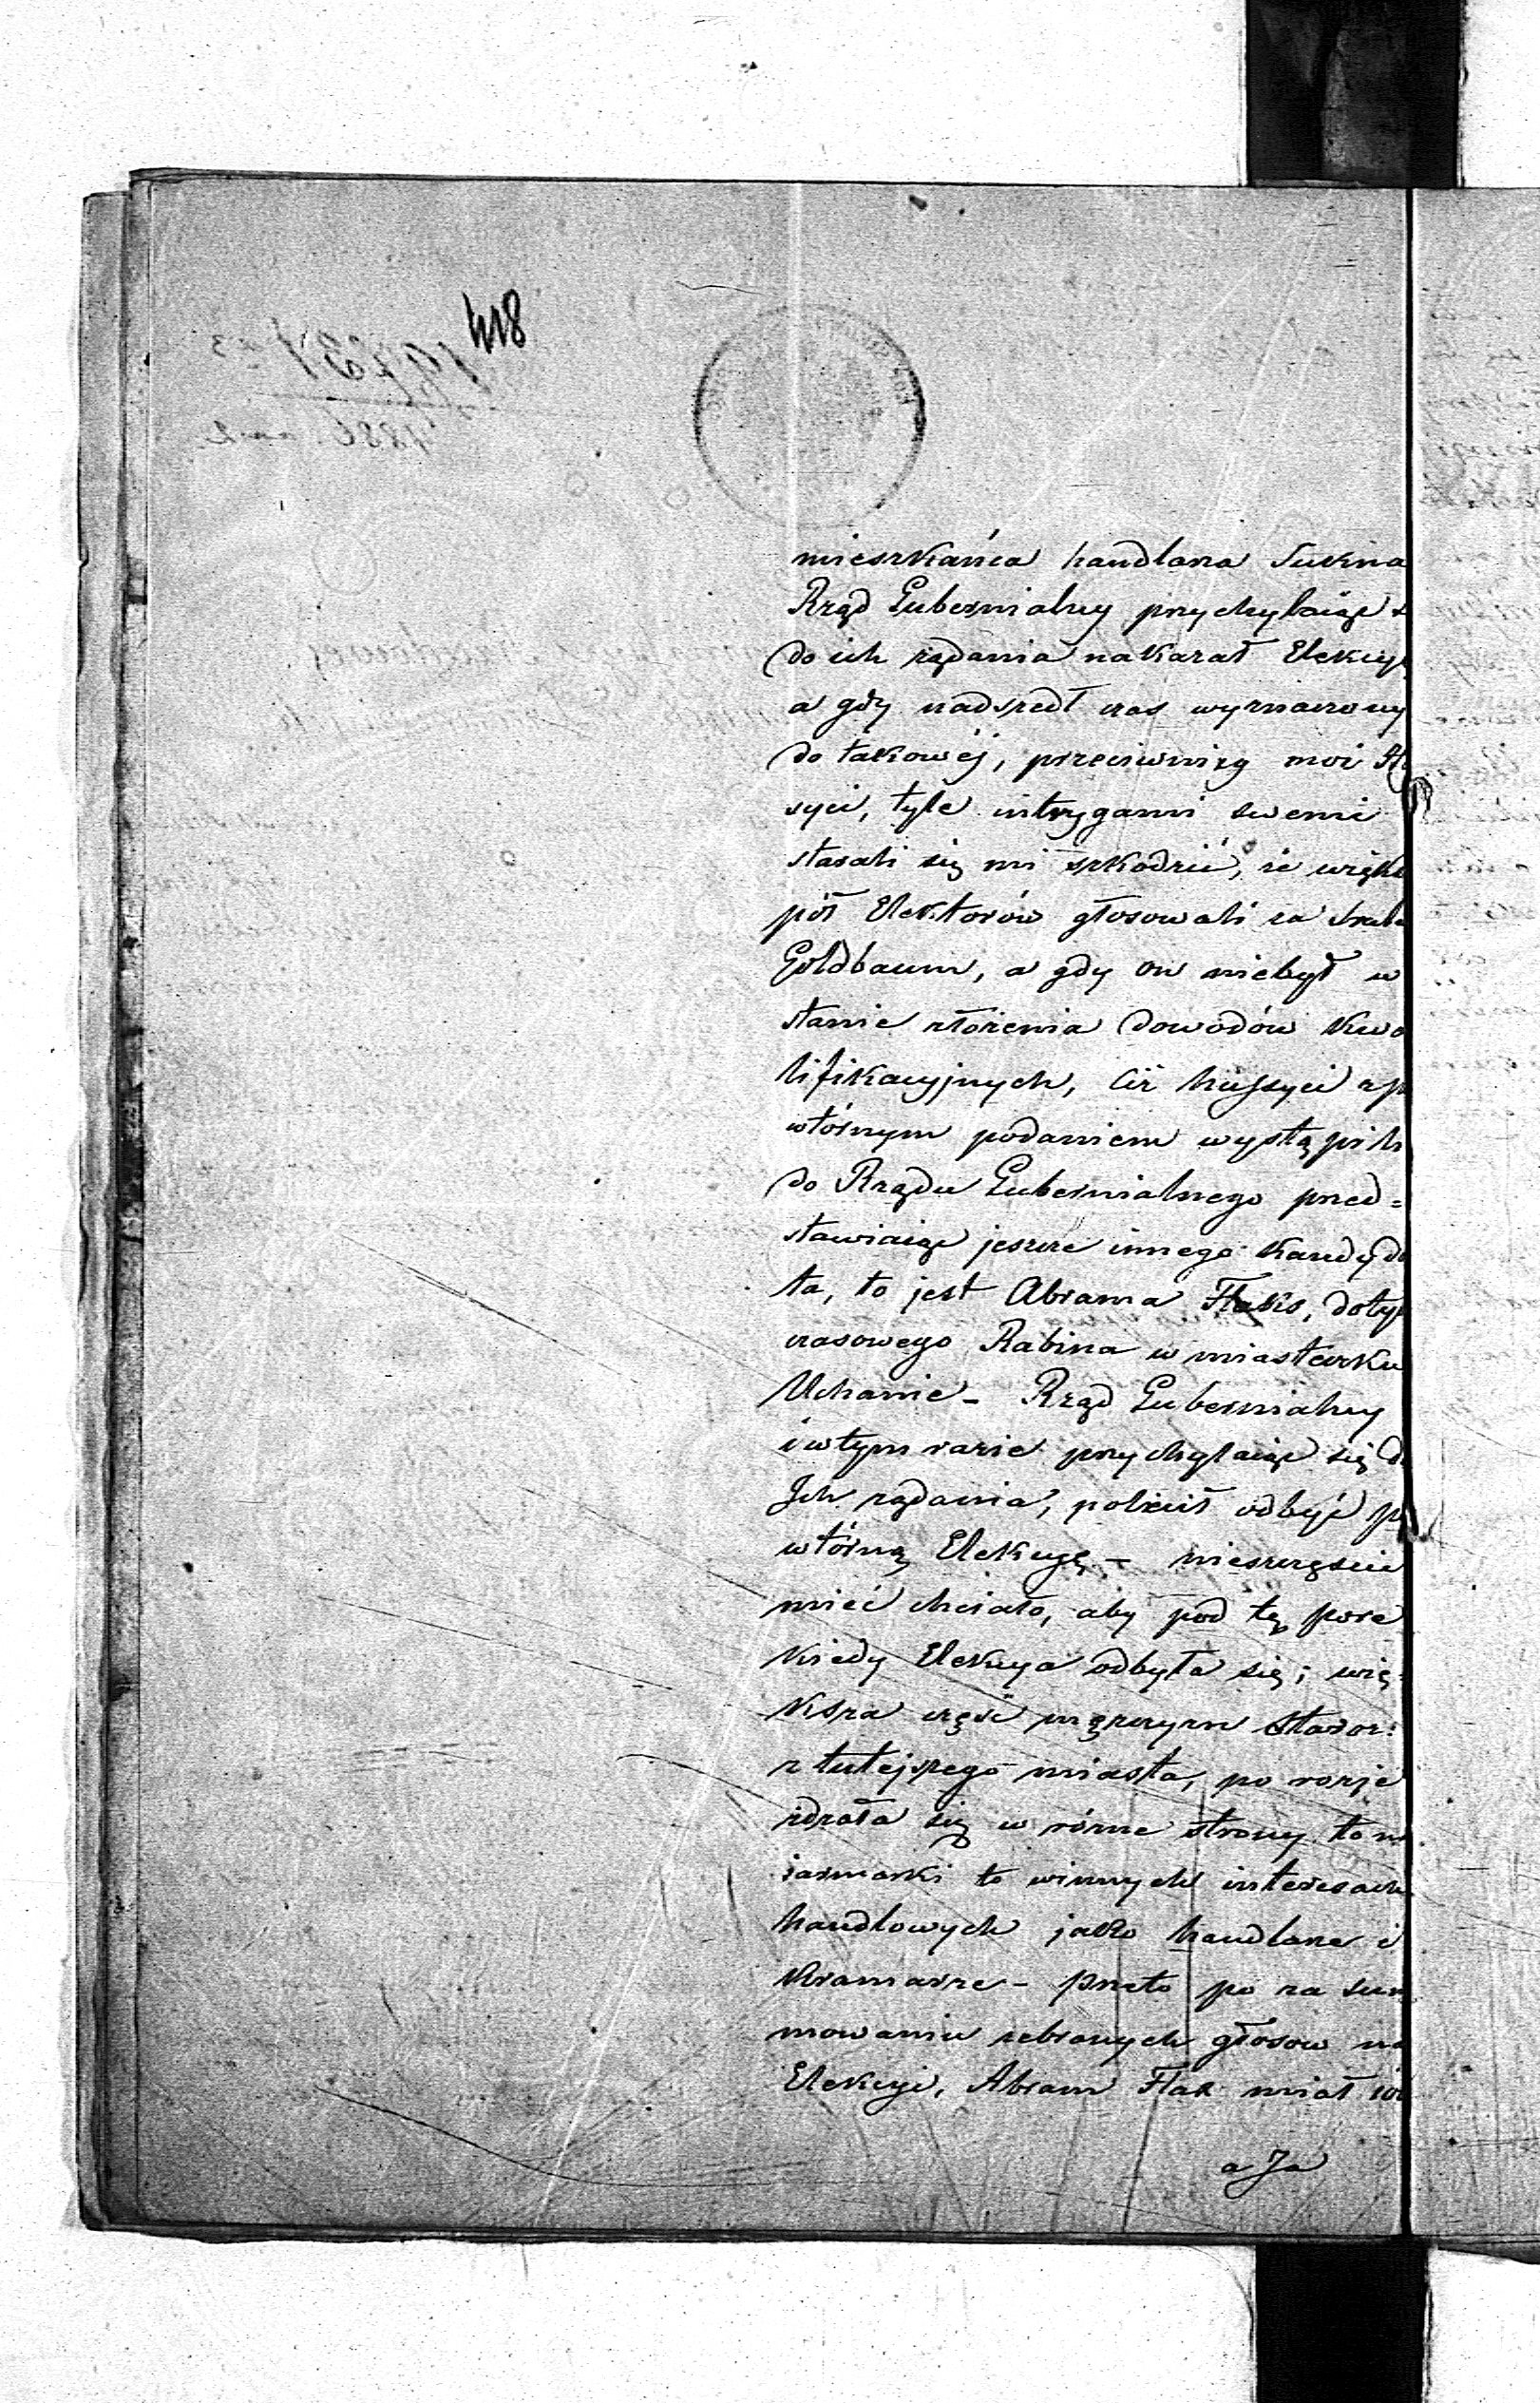 418
mieszkańca handlarza Sukna
Rząd Gubernialny przychylaiąc
do ich żądania nakazał Elekcyę
a gdy nadszedł czas wyznaczony
do takowéj, przeciwnicy moi
syci, tyle intrygami swemi
starali się mi szkodzić, że więk
pół Elektorów głosowali za
Goldbaum, a gdy on niebył w
stanie złożenia dowodów kwa
lifikacyjnych, ciż hussyci zpo
wtórnym podaniem wystąpili
do Rządu Gubernialnego przed=
stawiaiąc jeszcze innego kandyda
ta, to jest Abrama Flaks, doty
czasowego Rabina w miasteczku
Uchanie – Rząd Gubernialny
i wtym razie przychylaiąc się do
Ich żądania, polecił odbyć po
wtórną Elekcyę – nieszczęście
mieć chciało, aby pod tę porę
kiedy Elekcya odbyła się, wię=
ksza część mężczyzn Staroz:
z tutejszego miasta, po rozje
zdzała się w różne strony to na
iarmarki to winnych interesach
handlowych jako handlarze i
kramarze – przeto po za sum
mowaniu zebranych głosow na
Elekcyi, Abram Flak miał
a Ja